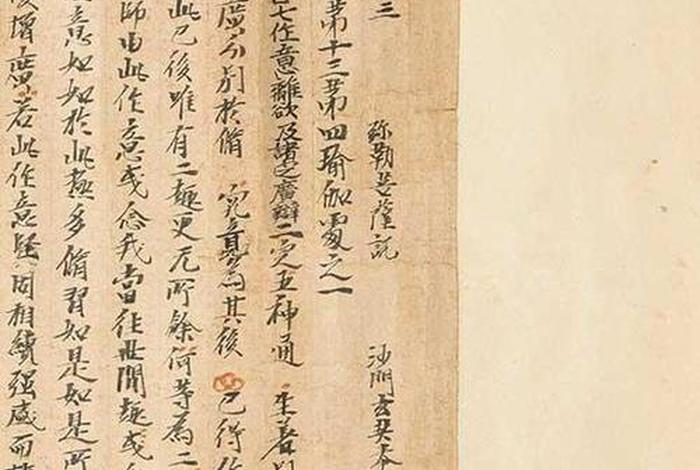 三 弥勒菩薩説 沙門玄奘奉
第十三第四瑜伽處之一
曰七作意離欲及諸定廣辯二定五神通 生差別
廣分別於脩 究竟為其後 已得作
此已後唯有二趣更无所餘何等為二
師由此作意或念我當往世間趣或
意如如於此極多脩習如是如是所
復增廣若此作意堅固相續强盛而轉